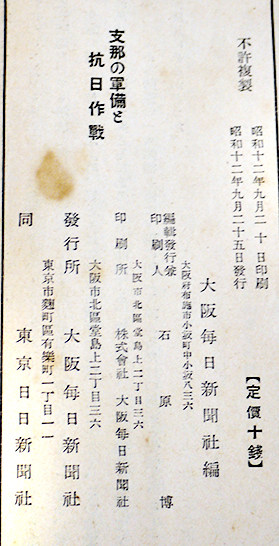 不許複製
昭和十二年九月二十日印刷
昭和十二年九月二十五日發行
【定價十錢】
支那の軍備と
抗日作戰
大阪每日新聞社編
大阪府布施市小阪町中小阪八三六
編輯發行兼
印刷人 石原 博
大阪市北區堂島上二丁目三六
印刷所 株式會社 大阪每日新聞社
大阪市北區堂島上二丁目三六
發行所 大阪每日新聞社
東京市麴町區有樂町一丁目一一
同 東京日日新聞社